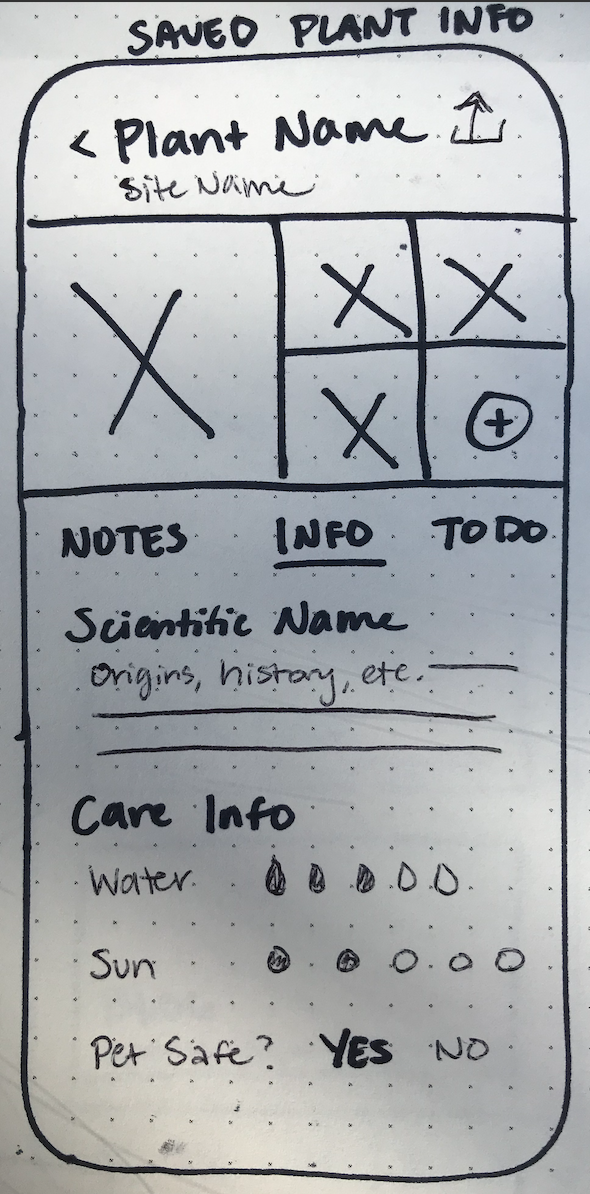 SAVED PLANT INFO
< Plant Name
Site Name
+
NOTES INFO TO DO
Scientific Name
Origins, history, etc.
Care Info
Water
Sun
Pet Safe? YES NO